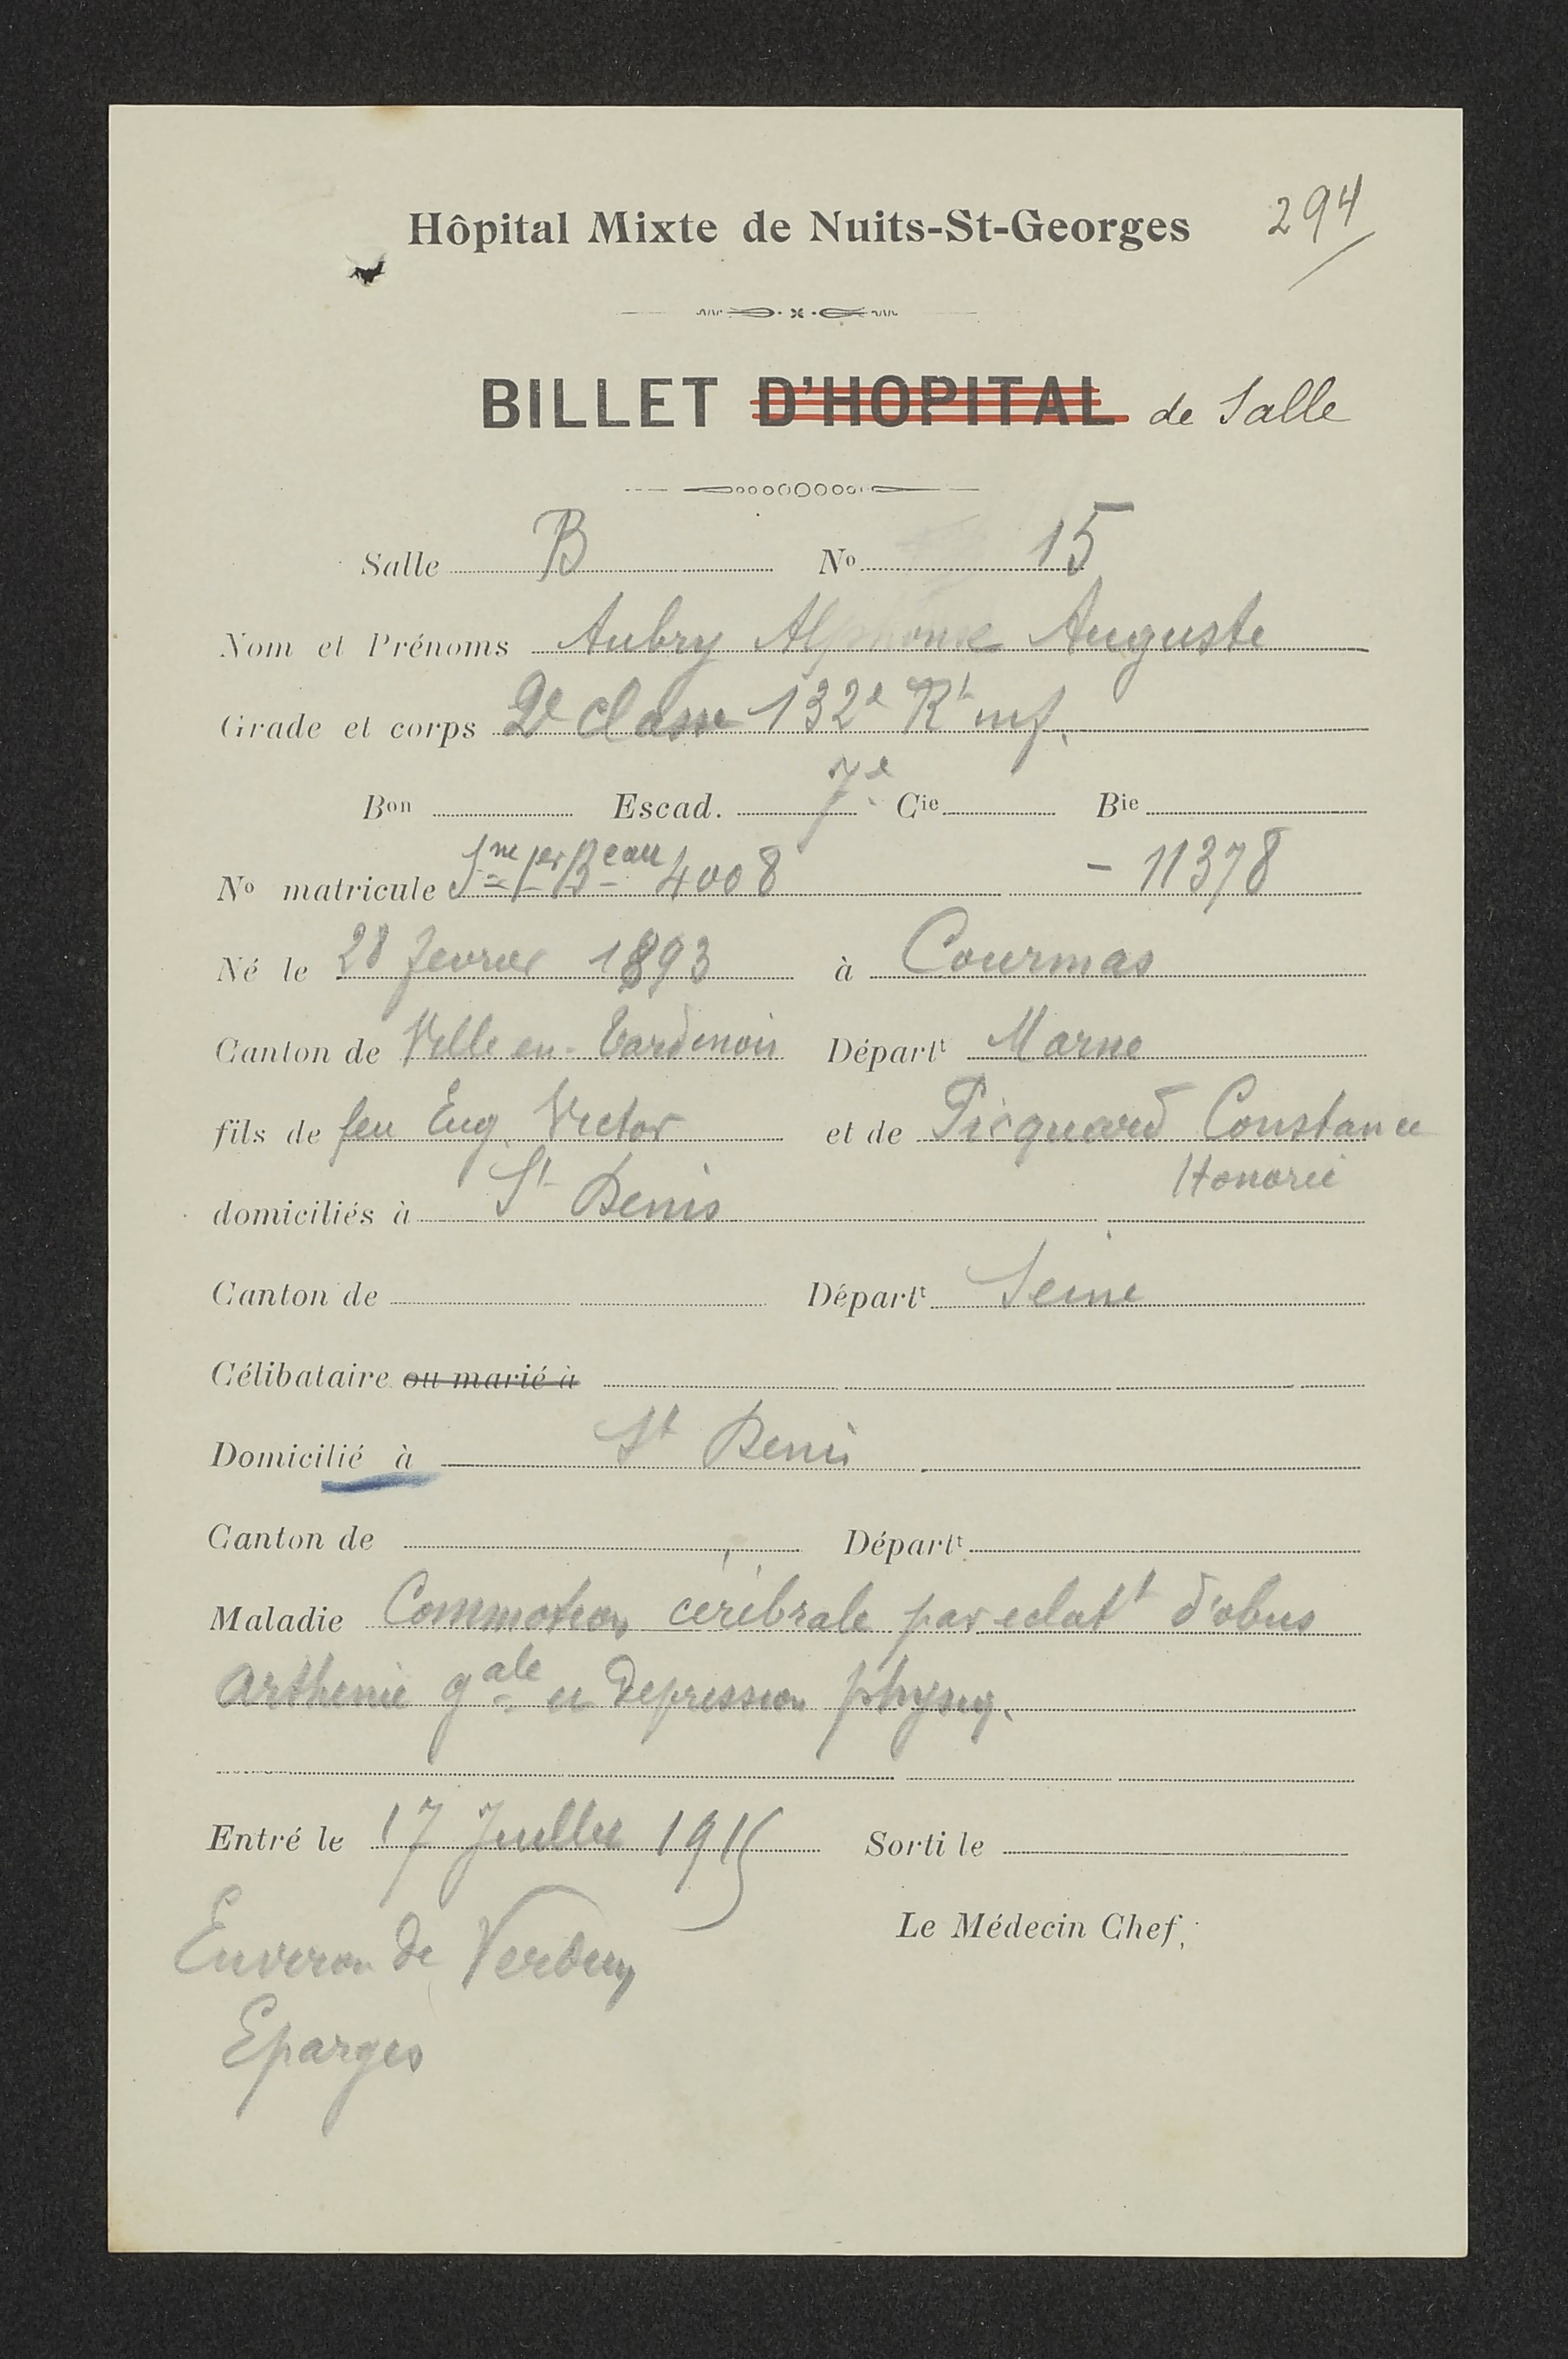 Hôpital Mixte de Nuits-St-Georges 294
BILLET D'HOPITAL de Salle
Salle B No 15
Nom et Prénoms Aubry Alphonse Auguste
Grade et corps 2e classe 132e Rt inf.
Bon Escad. 7e Cie Bie
No matricule Sne 1er Beau 4008 - 11378
Né le 28 fevrier 1893 à Courmas
Canton de Ville en-Tardenois Départt Marne
fils de feu Eug. Victor et de Picquard Constance
Honorée
domiciliés à St Denis
Canton de Départt Seine
Célibataire ou marié à
Domicilié à St Denis
Canton de Départt
Maladie Commotion cérébrale par eclatt d'obus
asthenie gale et depression physiq.
Entré le 17 Juillet 1915 Sorti le
Le Médecin Chef,
Environ de Verdun
Eparges